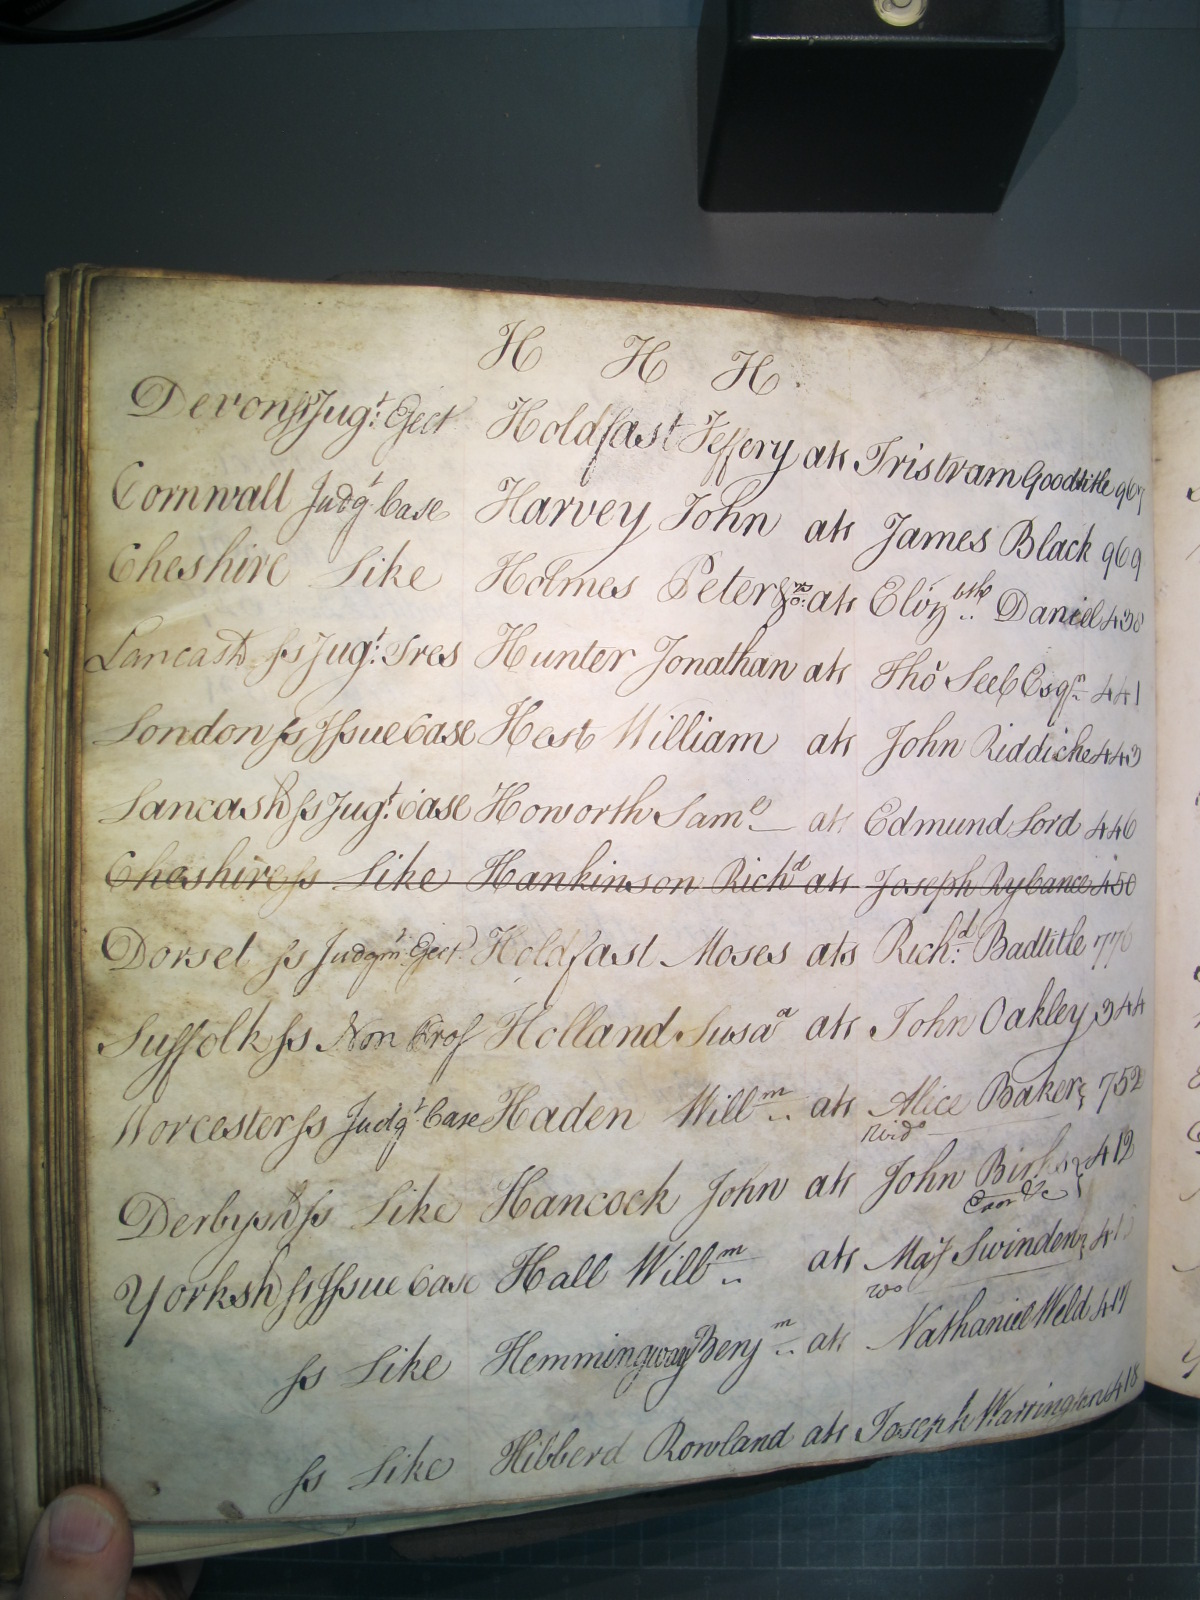 H H H.
Devon ſs Jugt: Eject Holdfast Jeffery ats Tristram Goodtitle 967
Cornwall Judgt Case Harvey John ats James Black 969
Cheshire Like Holmes Peter ats Elizbth Daniel 438
Lancash ſs Jugt: Tres Hunter Jonathan ats Tho Seel Esqr 441
London ſs Issue Case Hest William ats John Riddiche 443
Lancash ſs Jugt: Case Howorth Saml ats Edmund Lord 446
Cheshire ſs Like Hankinson Richd ats Joseph Rylance 450
Dorset ſs Judgmt Eject Holdfast Moses ats Richd: Badtitle 776
Suffolk ſs Non Pros Holland Susaa ats John Oakley 344
Worcester ſs Judgt Case Haden Willm ats Alice Baker 752
Wido
Derbysh ſs Like Hancock John ats John Birks 412
&c
Yorksh ſs Issue Case Hall Willm ats May Swinden
wo
ſs Like Hemmingway Benjm ats Nathaniel Weld 417
ſs Like Hibberd Rowland ats Joseph Warrington 418